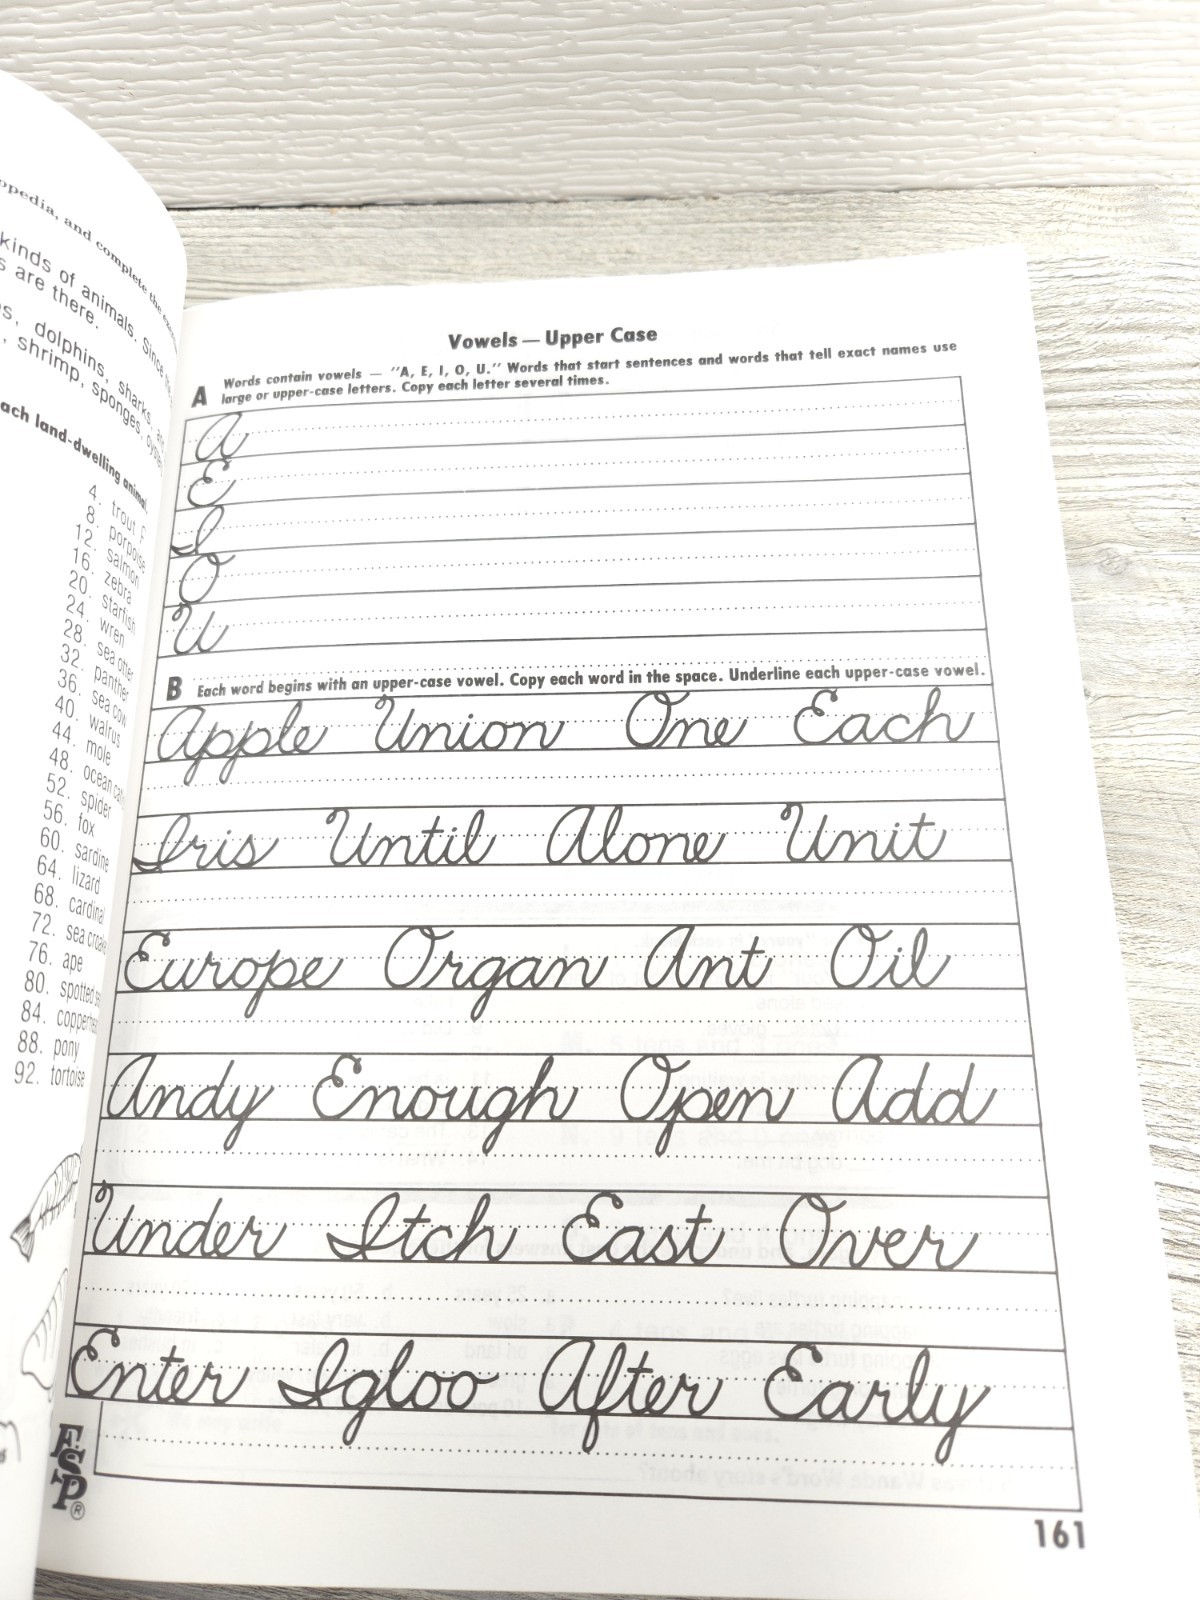 opedia, and complete the
kinds of animals. Since
s are there.
dolphins, sharks, and
shrimp, sponges,
ach land-dwelling animal.
4. trout
8. porpoise
12. salmon
16. zebra
20. starfish
24. wren
28. sea otter
32. panther
36. sea cow
40. walrus
44. mole
48. ocean
52. spider
56. fox
60. sardine
64. lizard
68. cardinal
72. sea
76. ape
80. spotted
84.
88. pony
92. tortoise
Vowels — Upper Case
A Words contain vowels — "A, E, I, O, U." Words that start sentences and words that tell exact names use
large or upper-case letters. Copy each letter several times.
A
E
I
O
U
B Each word begins with an upper-case vowel. Copy each word in the space. Underline each upper-case vowel.
Apple Union One Each
Iris Until Alone Unit
Europe Organ Ant Oil
Andy Enough Open Add
Under Itch East Over
Enter Igloo After Early
ESP®
161